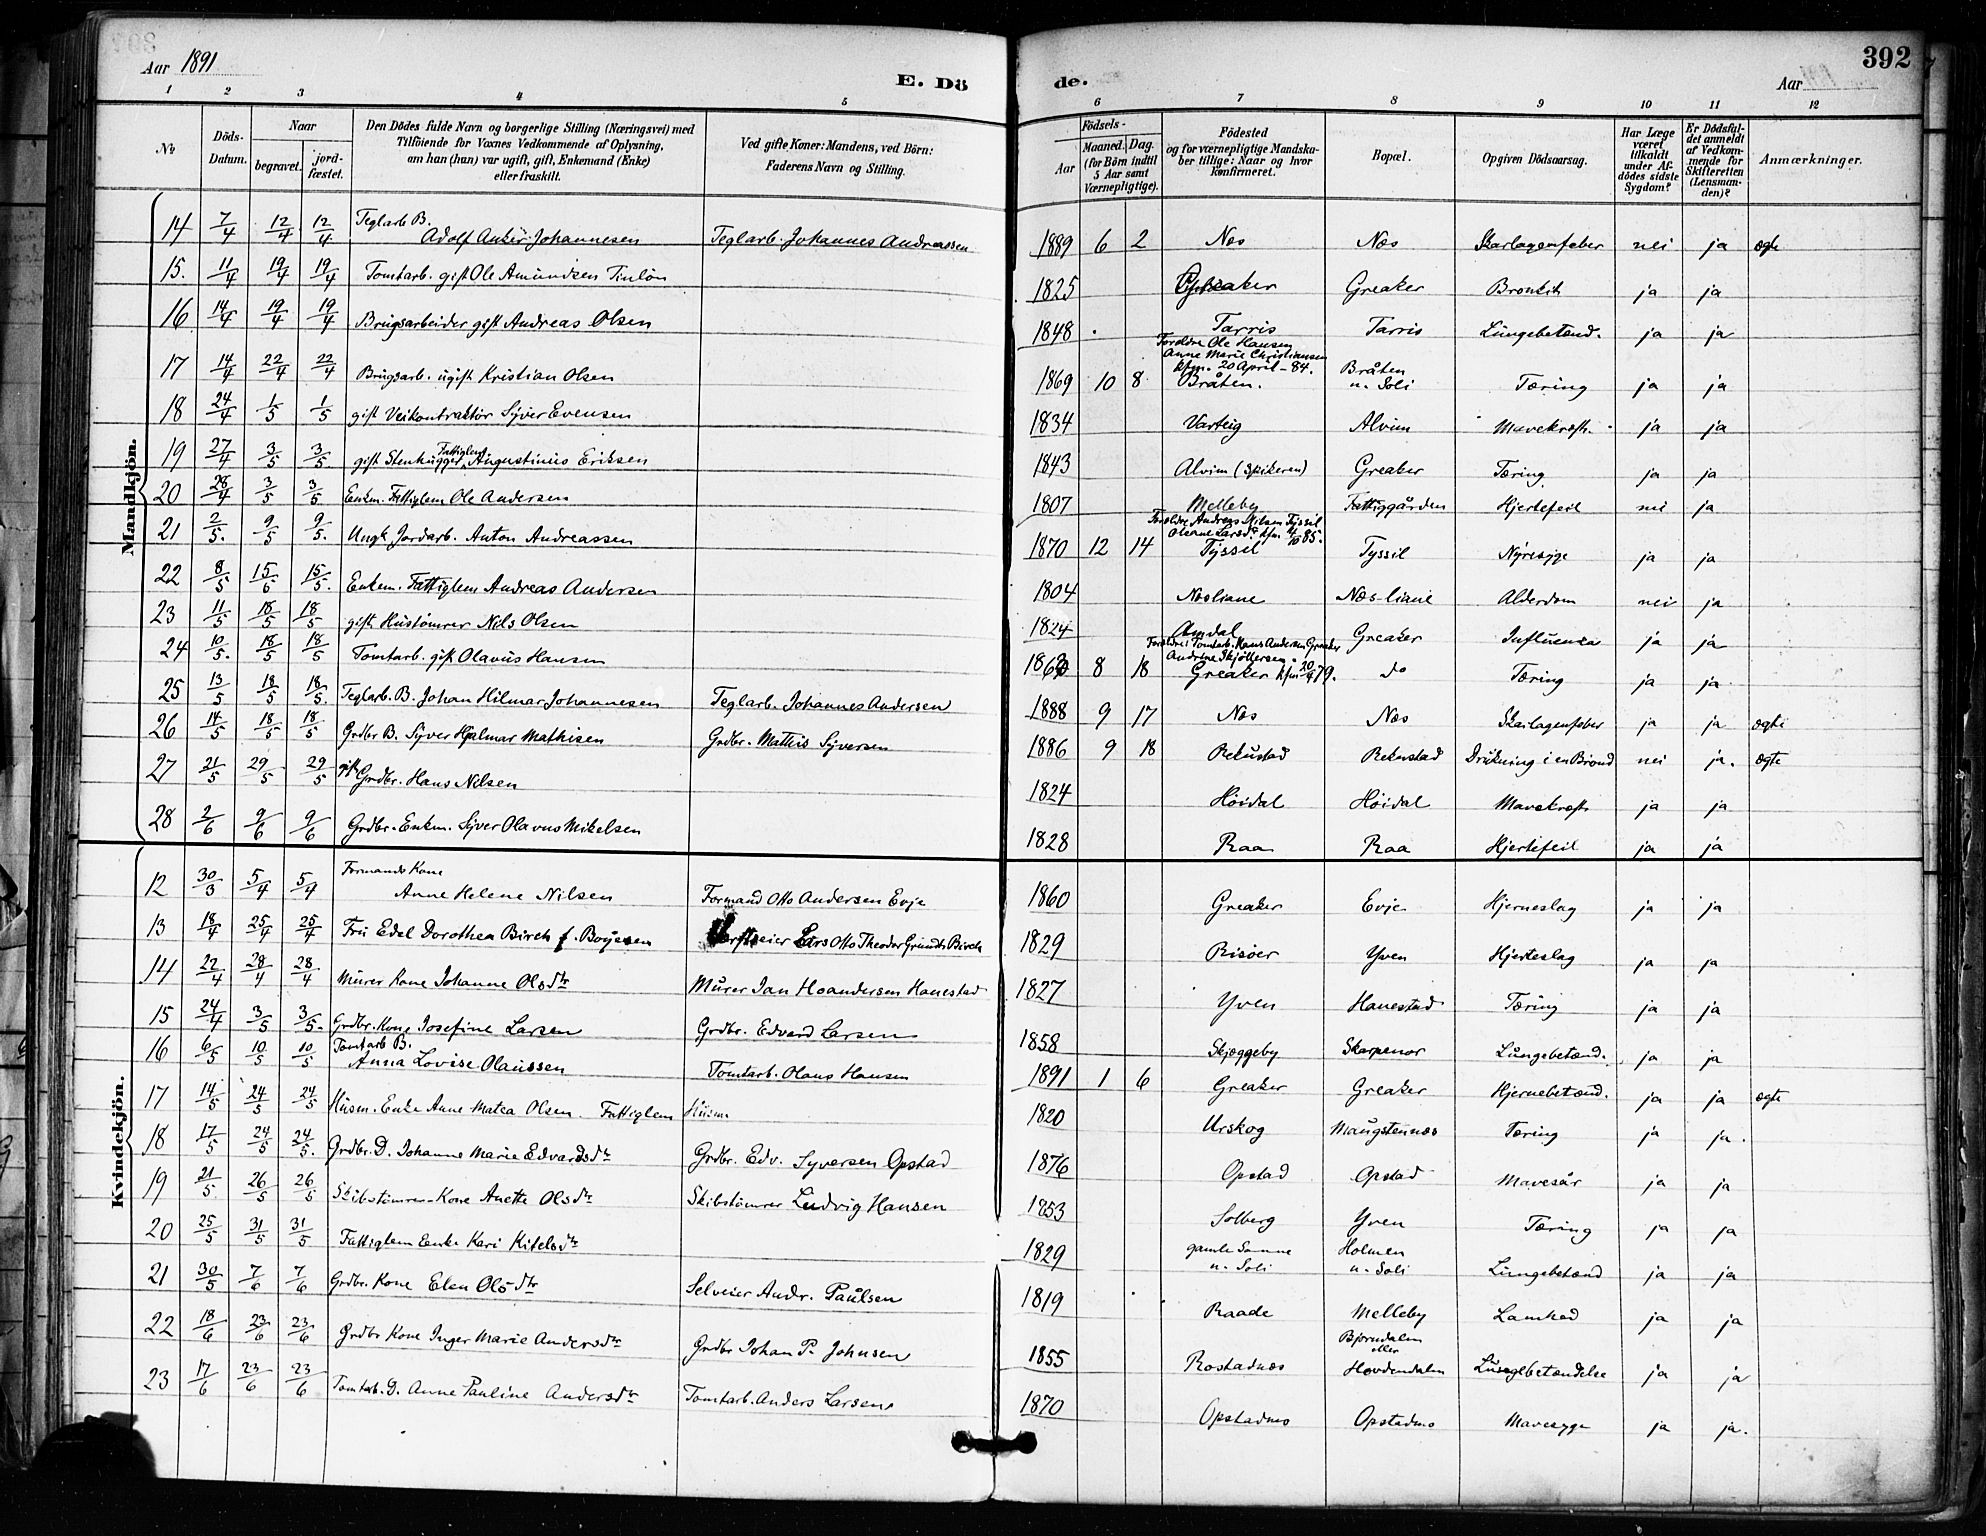 392
Aar 1891
E. Dö
de.
Aar
1 2 3 4 5 6 7 8 9 10 11 12
№
Döds-Datum.
Naar
begravet.
jord-fæstet.
Den Dödes fulde Navn og borgerlige Stilling (Næringsvei) med Tilföiende for Voxnes Vedkommende af Oplysning, om han (hun) var ugift, gift, Enkemand (Enke) eller fraskilt.
Ved gifte Koner: Mandens, ved Börn: Faderens Navn og Stilling.
Födsels-
Aar
Maaned. Dag.
(for Börn indtil 5 Aar samt Værnepligtige).
Födested og for værnepligtige Mandskaber tillige: Naar og hvor konfirmeret.
Bopæl.
Opgiven Dödsaarsag.
Har Læge været tilkaldt under Afdödes sidste Sygdom?
Er Dödsfaldet anmeldt af Vedkommende for Skifteretten (Lensmanden)?
Anmærkninger.
Mandkjön.
14 7/4 12/4 12/4 Teglarb B. Adolf Anker Johannesen Teglarb. Johannes Andreassen 1889 6 2 Næs Næs Skarlagensfeber nei ja ægte
15. 11/4 19/4 19/4 Tomtarb. gift Ole Amundsen Tinlön 1825 Greaker Greaker Bronkit ja ja
16 14/4 19/4 19/4 Brugsarbeider gift Andreas Olsen 1848 Tarris Tarris Lungebetænd. ja ja
17 14/4 22/4 22/4 Brugsarb. ugift Kristian Olsen 1869 10 8 Forældre Ole Hansen Anne Marie Christiansen kfm. 20 April - 84. Bråten. Bråten u. Soli Tæring ja ja
18 24/4 1/5 1/5 gift Veikontraktör Syver Evensen 1834 Varteig Alvim Mavekræft. ja ja
19 27/4 3/5 3/5 gift Stenhugger Fattiglem Augustinus Eriksen 1843 Alvim (Spikeren) Greaker Tæring ja ja
20 28/4 3/5 3/5 Enkm. Fattiglem Ole Andersen 1807 Melleby Fattiggården Hjertefeil nei ja
21 2/5. 9/5 9/5. Ungk Jordarb. Anton Andreassen 1870 12 14 Forældre Andreas Nilsen Tyssil Oleane Larsd. kfm 4/10 85. Tyssil Tyssil Nyresyge ja ja
22 8/5 15/6 15/5. Enkm. Fattiglem Andreas Andersen 1804 Næsliane Næs-liane Alderdom nei ja
23 11/5 18/5 18/5 gift Hustömrer Nils Olsen 1824 Omdal Greaker Influenza ja ja
24 10/5. 18/5 18/5 Tomtarb. gift Olavus Hansen 1863 8 18 Forældre: Tomtarb. Hans Andersen Greaker Andrine Skjöttersen. Greaker kfm 20/4 79. do Tæring ja ja
25 13/5 18/5 18/5. Teglarb. B. Johan Hilmar Johannesen Teglarb. Johannes Andersen 1888 9 17 Næs Næs Skarlagensfeber ja ja ægte
26 14/5 18/5 18/5 Grdbr B. Syver Hjalmar Mathisen Grdbr. Mathis Syversen 1886 9 18 Rekustad Rekustad Drukning i en Brönd nei ja. ægte
27 21/5 29/5 29/5 gift Grdbr. Hans Nilsen 1824 Höidal Höidal Mavekræft ja ja
28 2/6 9/6 9/6 Grdbr. Enkm. Syver Olavus Mikelsen 1828 Raa Raa Hjertefeil ja ja
Kvindekjön.
12 30/3 5/4 5/4 Formands Kone Anne Helene Nilsen Formand Otto Andersen Evje 1860 Greaker Evje Hjerneslag ja ja
13 18/4 25/4 25/4 Fru Edel Dorothea Birch f. Boyesen Lars Otto Theodor Grundt Birch 1829 Risöer Yven Hjerteslag ja ja
14 22/4 28/4 28/4 Murer Kone Johanne Olsdtr Murer Jan Hoandersen Hanestad 1827 Yven Hanestad Tæring ja ja
15 24/4 3/5 3/5. Grdbr. Kone Josefine Larsen Grdbr. Edvard Larsen 1858 Skjeggeby Skarpenor Lungebetænd. ja ja
16 6/5 10/5 10/5 Tomtarb B. Anna Lovise Olaussen Tomtarb. Olaus Hansen 1891 1 6 Greaker Greaker Hjernebetænd. ja ja ægte
17 14/5 24/5 24/5 Husm. Enke Anne Matea Olsen. Fattiglem Husm 1820 Urskog Maugstennæs Tæring ja ja.
18 17/5 24/5 24/5. Grdbr. D. Johanne Marie Edvardsdtr Grdbr. Edv. Syversen Opstad 1876 Opstad Opstad Mavesår ja ja
19 21/5 26/5 26/5 Skibstömrer-Kone Anette Olsdtr Skibstömrer Ludvig Hansen 1853 Solberg Yven Tæring ja ja
20 25/5 31/5 31/5 Fattiglem Enke Kari Kitelsdtr 1829 gamle Samme u. Soli Holmen u. Soli Lungebetænd ja ja
21 30/5 7/6 7/6 Grdbr. Kone Elen Olsdtr Selveier Andr. Paulsen 1819 Raade Melleby Lamhed ja ja
22 18/6 23/6 23/6 Grdbr Kone Inger Marie Andersdtr Grdbr Johan P. Johnsen 1855 Rostadnæs Björndalen eller Hovdendalen Lungebetændelse ja ja
23 17/6 23/6 23/6 Tomtarb. D. Anne Pauline Andersdtr Tomtarb. Anders Larsen 1870 Opstadmo Opstadmo Mavesyge ja ja.